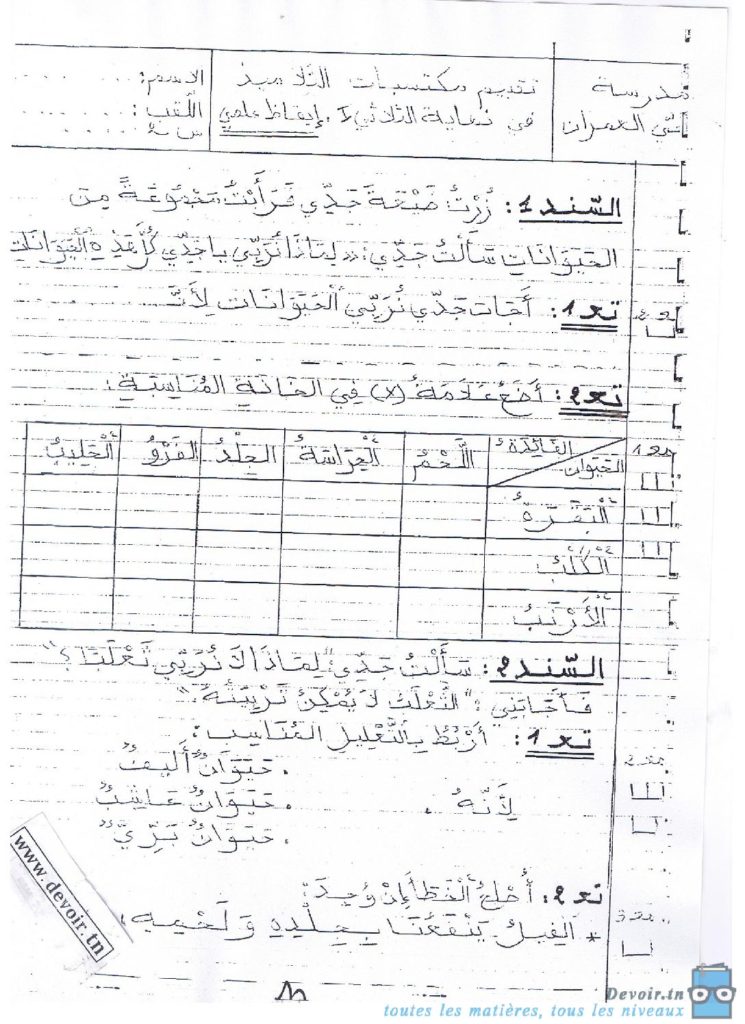 مدرسة
حي العمران
تقييم مكتسبات التلاميذ
في نهاية الثلاثي I. إيقاظ علمي
الاسم: . . . . . .
اللقب: . . . . . .
س 2 . . . . . .
السّند 1: زُرْتُ ضَيْعَةَ جَدِّي فَرَأَيْتُ مَجْمُوعَةً مِنَ
الحَيَوَانَاتِ سَأَلْتُ جَدِّي: «لِمَاذَا تُرَبِّي يا جَدِّي كُلَّ هَذِهِ الْحَيَوَانَاتِ
تعـ 1: أَجَابَ جَدِّي نُرَبِّي الْحَيَوَانَات لِأَنَّ
مع 2
تعـ 2: أَضَعُ عَلَامَةُ (x) فِي الخَانَةِ المُنَاسِبَةِ:
مع 1
الفَائِدَةُ
الحَيَوَان
اللَّحْمُ
الْحِرَاسَةُ
الجِلْدُ
الفَرْوُ
الْحَلِيبُ
الْبَقَرَةُ
الْكَلْبُ
الْأَرْنَبُ
السّند 2: سَأَلْتُ جَدِّي: "لِمَاذَا لَا تُرَبِّي ثَعْلَبًا؟"
فَأَجَابَنِي: "الثَّعْلَبُ لَا يُمْكِنُ تَرْبِيَتُهُ."
تعـ 1: أَرْبُطُ بِالتَّعْلِيلِ المُنَاسِب:
. حَيَوَانٌ أَلِيفٌ
لِأَنَّهُ . . حَيَوَانٌ عَاشِبٌ
. حَيَوَانٌ بَرِّيٌّ
مع 2
تعـ 2: أُصْلِحُ الْخَطَأَ إِنْ وُجِدَ:
* الفِيلُ يَنْفَعُنَا بِجِلْدِهِ وَ لَحْمِهِ.
مع 3
www.devoir.tn
Devoir.tn
toutes les matières, tous les niveaux